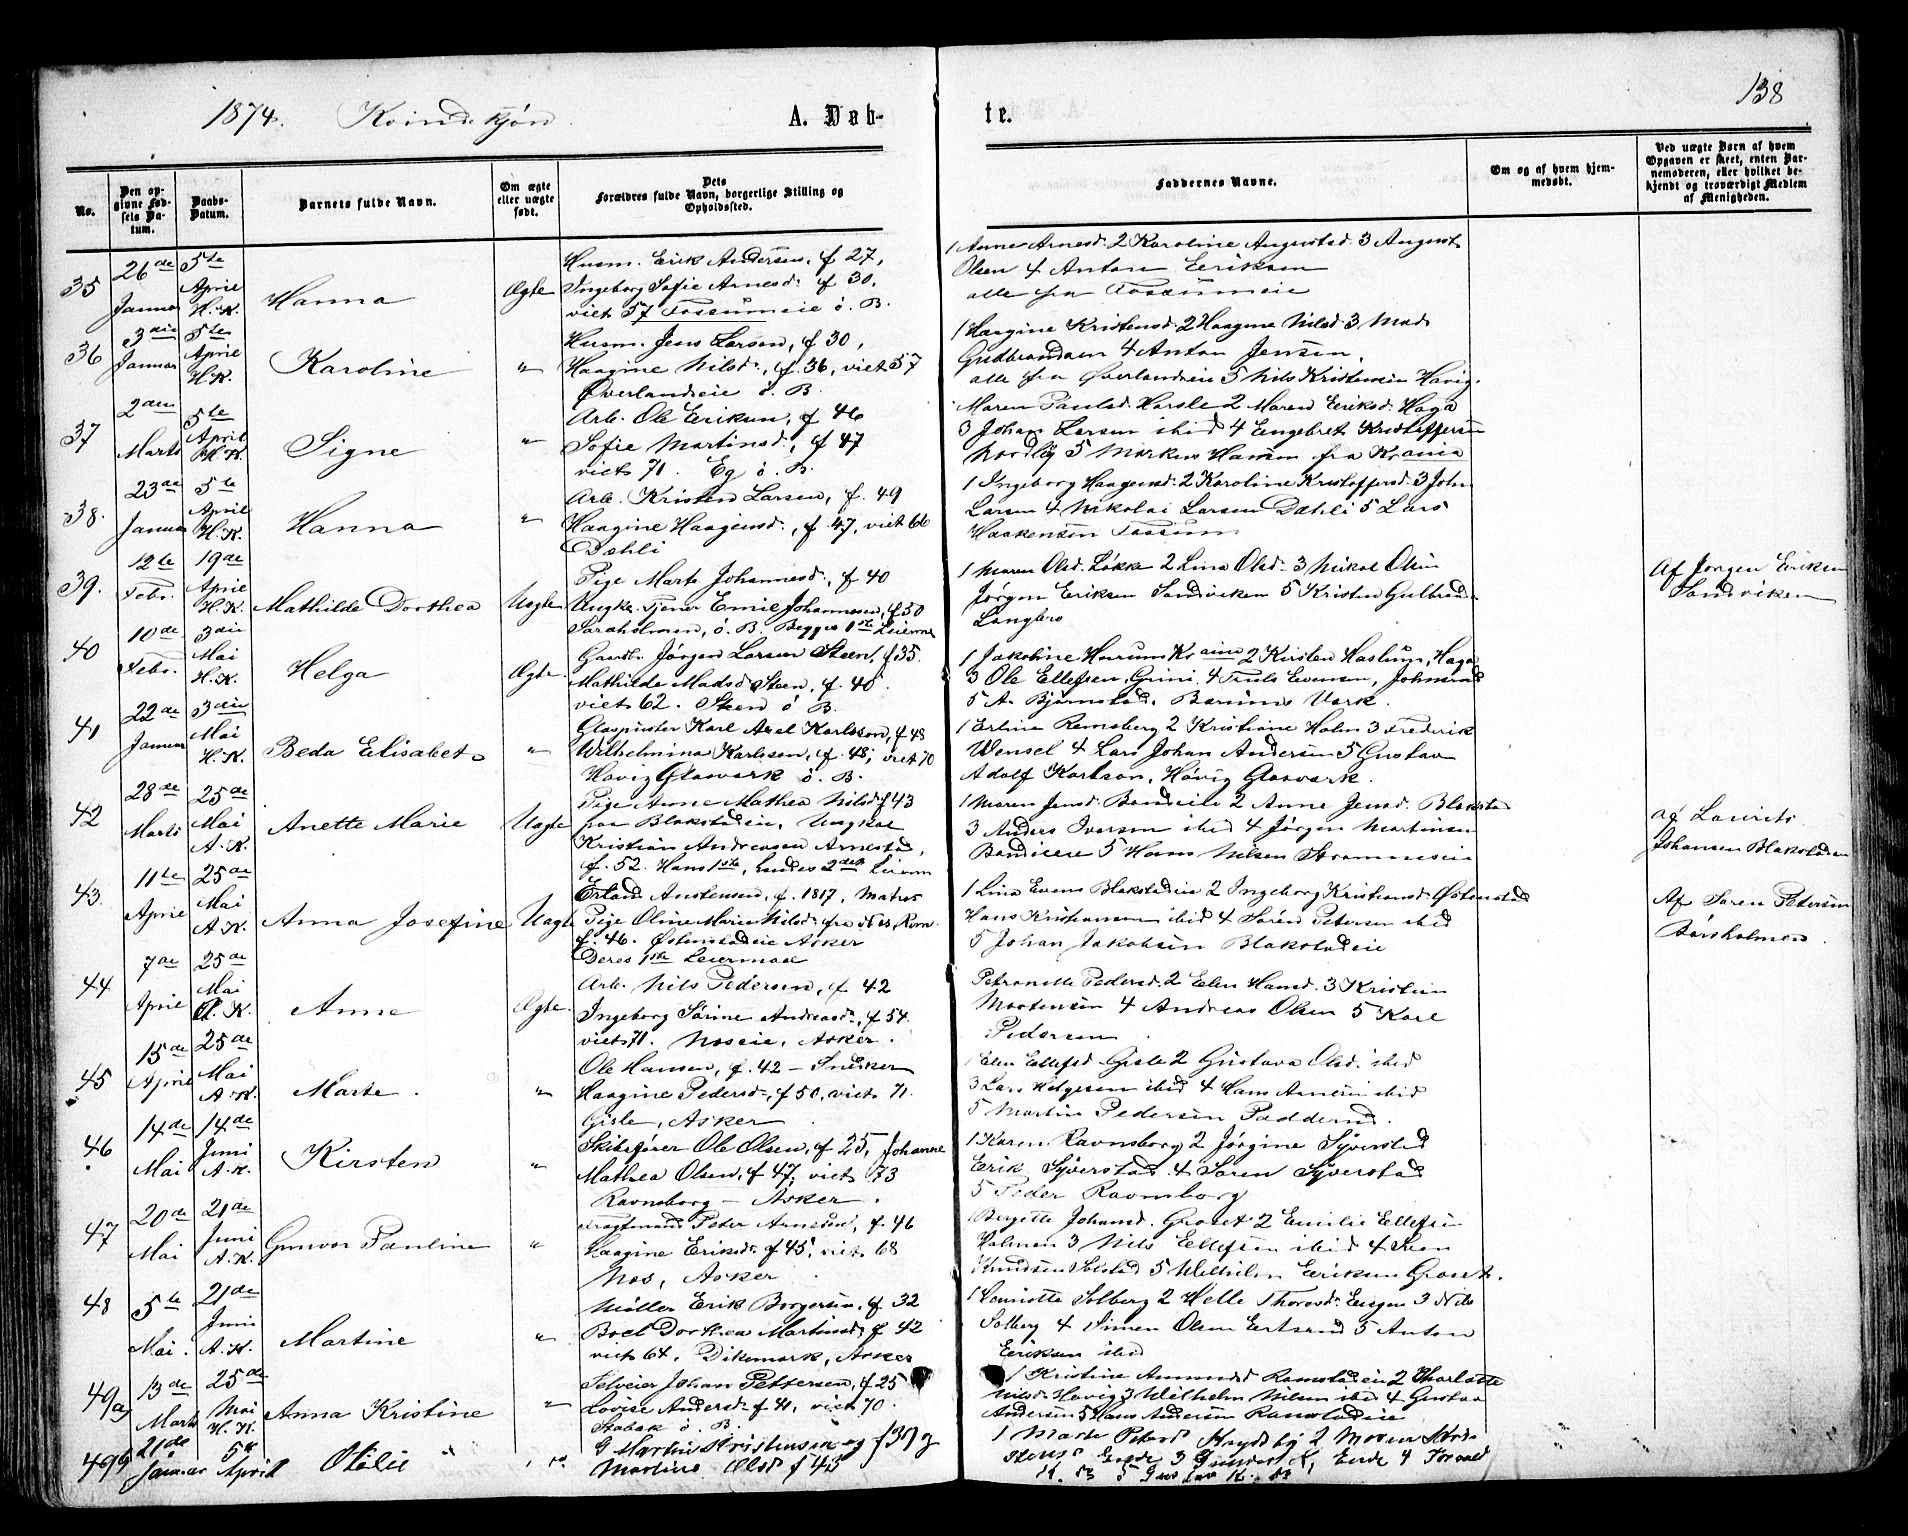 1874. Kvindekjøn. A. Døb-
te. 138
No.
Den opgivne Fødsels Datum.
Daabs-Datum.
Barnets fulde Navn.
Om ægte eller uægte født.
Dets Forældres fulde Navn, borgerlige Stilling og Opholdssted.
Faddernes Navne.
Om og af hvem hjemmedøbt.
Ved uægte Børn af hvem Opgaven er skeet, enten Barnemoderen, eller hvilket bekjendt og troværdigt Medlem af Menigheden.
35 26de Januar 5te April H.K. Hanna Ægte
Husm. Erik Andersen, f 27,
Ingeborg Sofie Arnesd. f 30.
viet 57 Fossumeie ö. B.
1 Anne Arnesd. 2 Karoline Augustad 3 August
Olsen 4 Anton Eriksen
alle fra Fossumeie
36 3die Januar 5te April H.K. Karoline "
Husm. Jens Larsen, f 30,
Haagine Nilsd., f. 36, viet 57
Øverlandseie ö. B.
1 Haagine Kristensd. 2 Haagine Nilsd. 3 Mads
Gudbrandsen 4 Anton Jensen,
alle fra Øverlandseie 5 Nils Kristensen Høvig.
37 2den Marts 5te April H.K. Signe "
Arb. Ole Eriksen, f 46
Sofie Martinsd., f 47
viet 71. Eg ö. B.
Maren Paulsd. Horsle 2 Maren Eriksd. Haga
3 Johan Larsen ibid 4 Engebret Kristoffersen
Nordby 5 Markus Hansen fra Kr.ania
38. 23de Januar 5te April H.K. Hanna "
Arb. Kristen Larsen, f. 49
Haagine Haagensd., f. 47, viet 66
Dæhli
1 Ingeborg Haagensd. 2 Karoline Kristoffersd. 3 John
Larsen 4 Nikolai Larsen Dæhli 5 Lars
Haakensen Fossum
39. 12te Febr. 19de April H.K. Mathilde Dorthea Uægte
Pige Marte Johannesd., f 40
Ungk. Tjener Emil Johannesen, f. 50
Saraholmen, ö. B. Begges 1ste Leierm.
1 Maren Olsd. Løkke 2 Lina Olsd. 3 Nikol. Olsen
Jørgen Eriksen Sandviken 5 Kristen Gulbrands.
Langbro
Af Jørgen Eriksen
Sandviken
40 10de Febr. 3die Mai H.K. Helga Ægte
Gaardbr. Jørgen Larsen Steen, f 35.
Mathilde Madsd. Steen, f. 40
viet 62. Steen ö B.
1 Jakobine Harrum Kr.ania 2 Kirsten Haslum, Haga
3 Ole Ellefsen, Grini 4 Truls Evensen, Johnsrud
5 A. Bjørnstad, Bærums Værk.
41 22de Januar 3die Mai H.K. Beda Elisabet "
Glaspuster Karl Axel Karlsson, f 48
Wilhelmina Karlsson, f. 48, viet 70
Høvig Glasværk ö. B.
1 Erlina Remsberg 2 Kristiane Holm 3 Frederik
Wensel 4 Lars Johan Andersen 5 Gustav
Adolf Karlson, Høvig Glasværk.
42 28de Marts 25de Mai A.K. Anette Marie Uægte
Pige Anne Mathea Nilsd. f 43
fra Blakstadeie, Ungkar
Kristian Andreasen Arnestad,
f. 52. Hans 1ste, hendes 2det Leierm.
1 Maren Jensd. Bondeie 2 Anne Jensd. Blakstad
3 Anders Iversen ibid 4 Jørgen Martinsen
Bondieie 5 Hans Nilsen Strømmseie
af Laurits
Johansen Blakstadeie
43. 11te April 25de Mai A.K. Anna Josefine Uægte
Erland Austensen, f. 1817, Matros
Pige Oline Marie Nilsd. fra Nes, Rom.
f. 46. Østenstadeie Asker
Deres 1ste Leiermaal
1 Lina Evens Blakstadeie 2 Ingeborg Kristiansd. Østenstad
Hans Kristiansen ibid 4 Søren Petersen ibid
5 Johan Jakobsen Blakstadeie
Af Søren Petersen
44 7de April 25de Mai A.K. Anne Ægte
Arb. Nils Pedersen, f 42
Ingeborg Sørine Andreasd., f 54.
viet 71. Næseie, Asker.
Petronelle Pedersd. 2 Elen Hansd. 3 Kristian
Mortensen 4 Andreas Olsen 5 Karl
Pedersen.
45 15de April 25de Mai A.K. Marte. "
Ole Hansen, f. 42 – Snedker
Haagine Pedersd., f 50, viet 71.
Gisle, Asker
1 Elen Ellefsd. Gisle 2 Gustava Olsd. ibid
3 Lars Helgesen ibid 4 Hans Arnesen ibid
5 Martin Pedersen Padderud.
46 14de Mai 14de Juni A.K. Kirsten "
Skibsfører Ole Olsen, f 25, Johanne
Mathea Olsen, f. 47, viet 73
Ravnsborg – Asker.
1 Karen Ravnsborg 2 Jørgine Syverstad
Erik Syverstad 4 Søren Syverstad
5 Peder Ravnsborg
47 20de Mai 21de Juni A.K. Gunvor Pauline "
Peter Arnesen, f. 46
Haagine Eriksd. f 45, viet 68
Næs, Asker
1 Bergette Johansd. Groset 2 Emilie Ellefsen
Holmen 3 Nils Ellefsen ibid 4 Sven
Knudsen Solstad 5 Wilhelm Eriksen Groset.
48 5te Mai. 21de Juni A.K. Martine "
Møller Erik Borgersen, f 32
Boel Dorthea Martinsd. f 42
viet 64. Dikemark, Asker
1 Henriette Solberg 2 Helle Thoresd. Engen 3 Nils
Solberg 4 Simen Olsen 5 Anton
Eriksen ibid
49a) 13de Marts 25de Mai H.K. Anna Kristine "
Selveier Johan Pettersen, f 25
Lovise Andersd. f 41, viet 70.
Stabæk ö. B.
1 Kristine Amundsd. Ramstadeie 2 Charlotte
Nilsd. Høvig 3 Wilhelm Nilsen ibid 4 Gustav
Andersen 5 Hans Andersen Ramstadeie
49b 21de Januar 5te April Otilie "
G. Martin Kristensen og f 39 g
Martine Olsd. f 43
1 Marte Petersd. 2 Maren
3 4
5